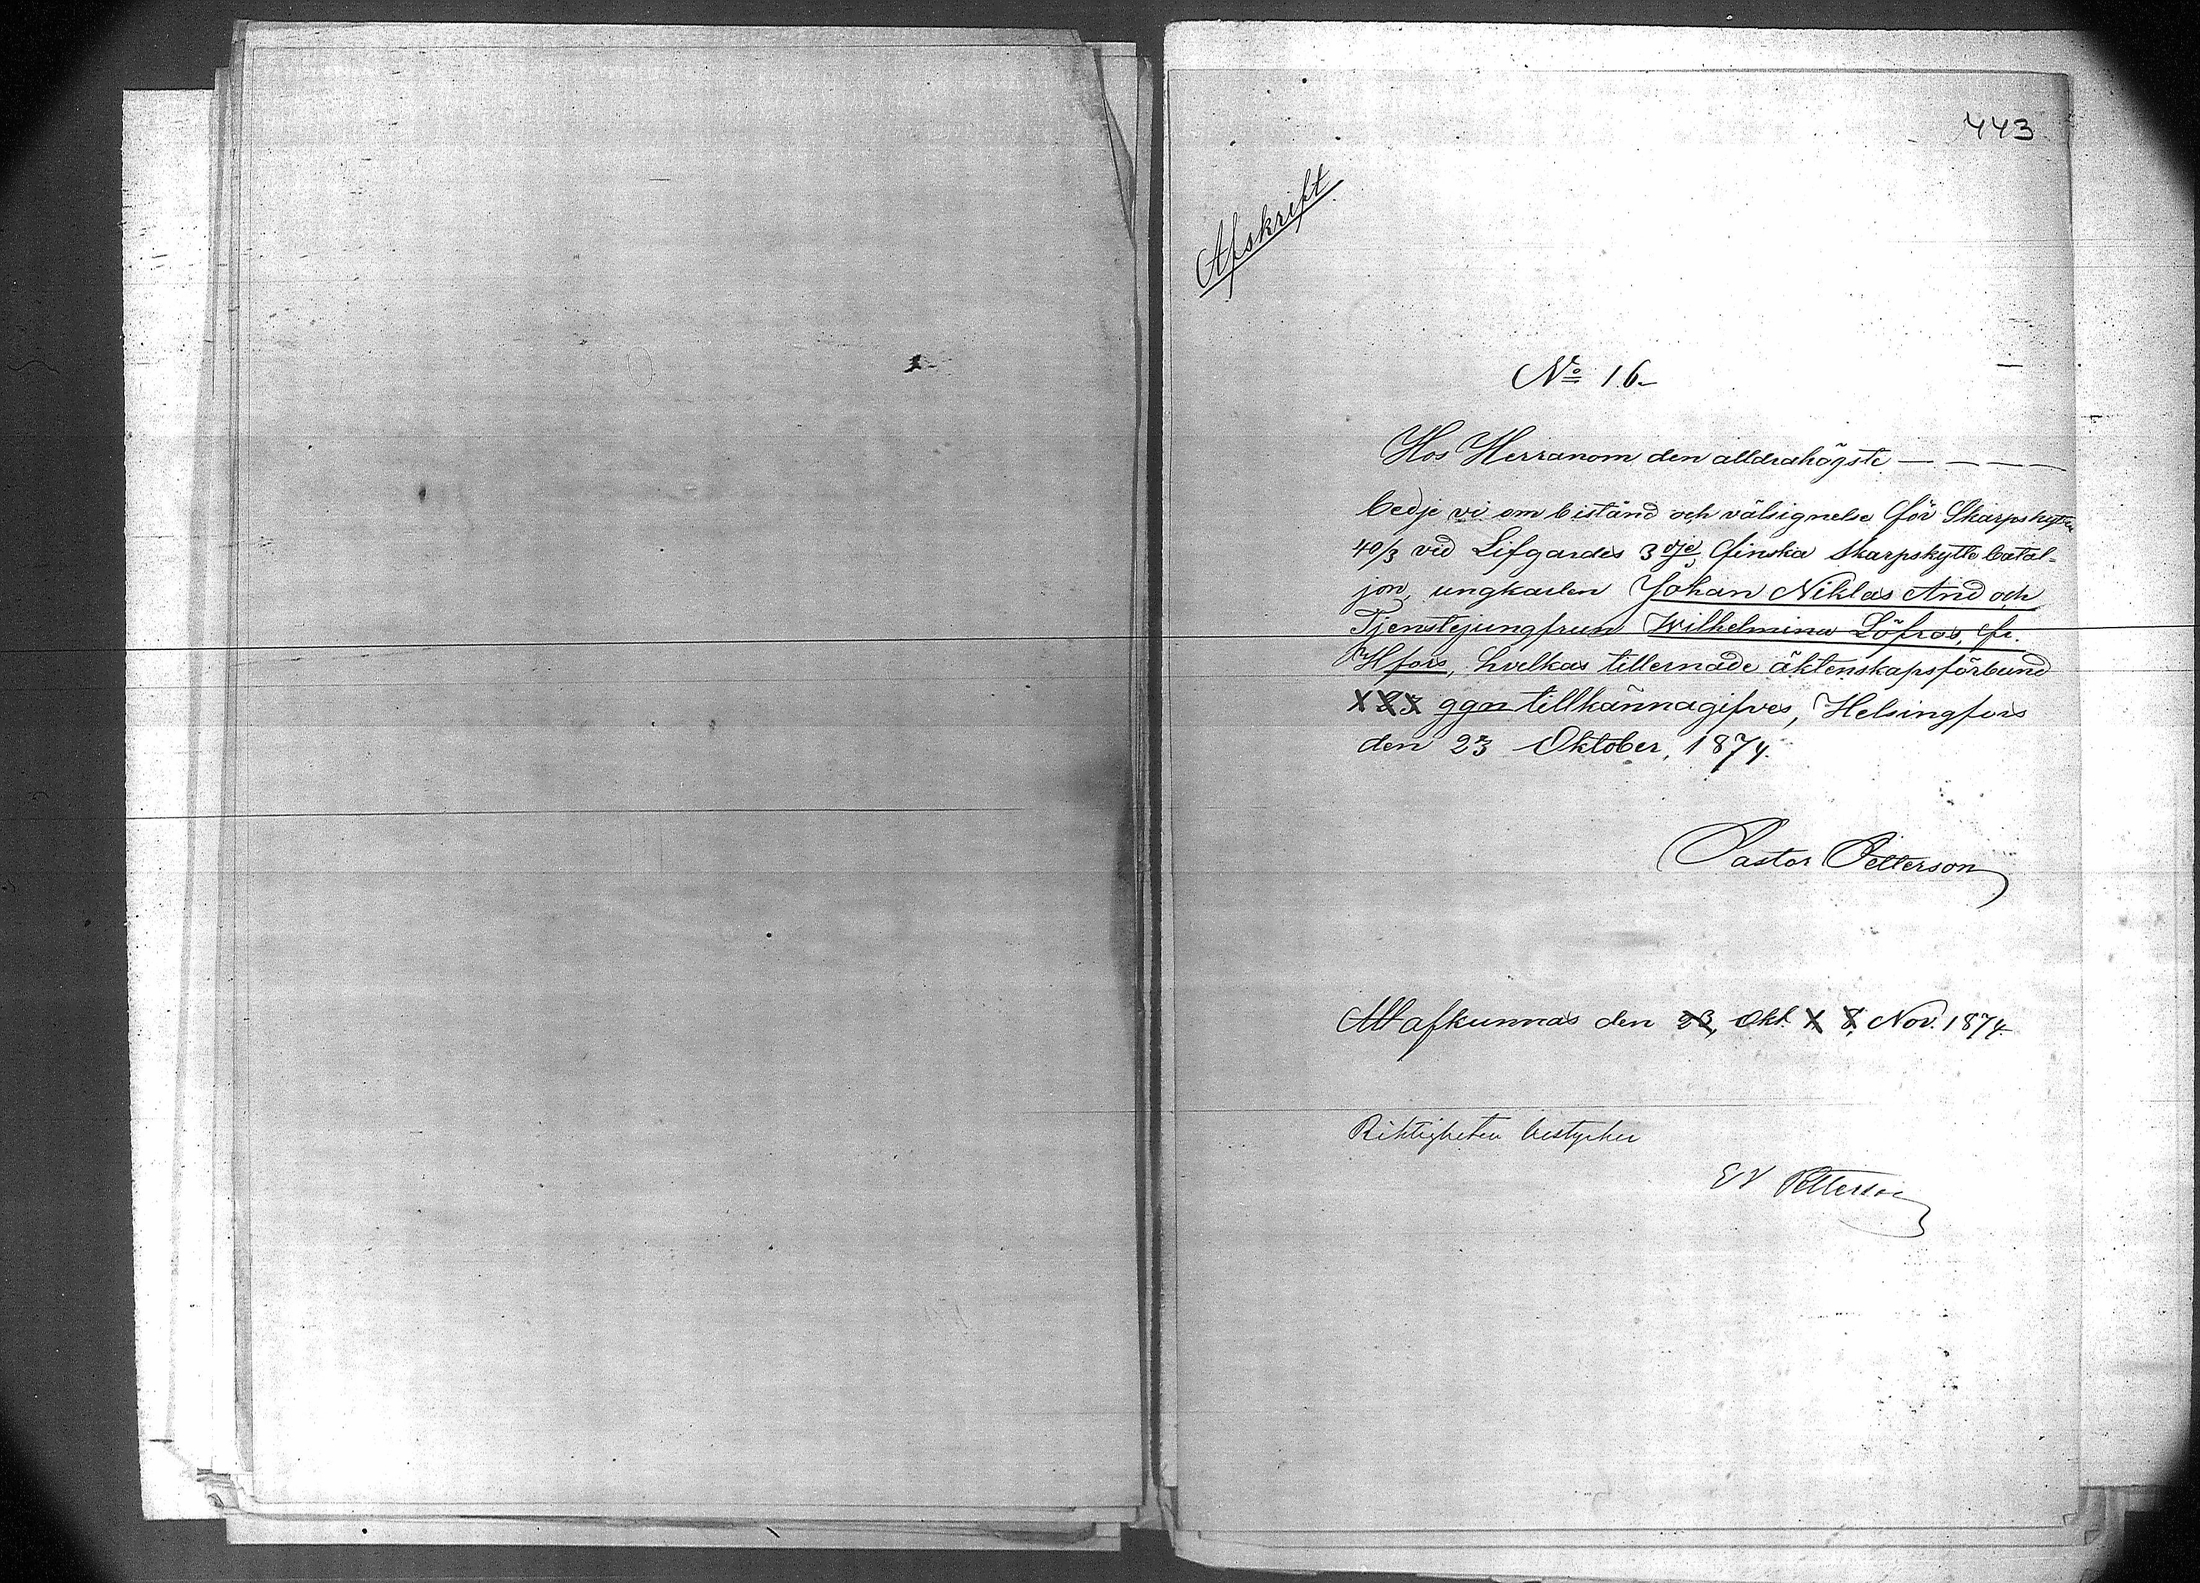 443
Afskrift
No 16
Hos Herranom den alldrahögste — — — —
bedje vi om bistånd och välsignelse för Skarpskytten
40/3 vid Lifgardes 3dje finska Skarpskytte batal-
jon, ungkarlen Johan Niklas And och
Tjenstejungfrun Wilhelmina Löfros, fr.
Hfors, hvilkas tillernade äktenskapsförbund
ggn tillkännagifves, Helsingfors
den 23 Oktober, 1874.
Pastor Petterson
Att afkunnas den Okt. Nov. 1874.
Riktigheten bestyrker
Petterson